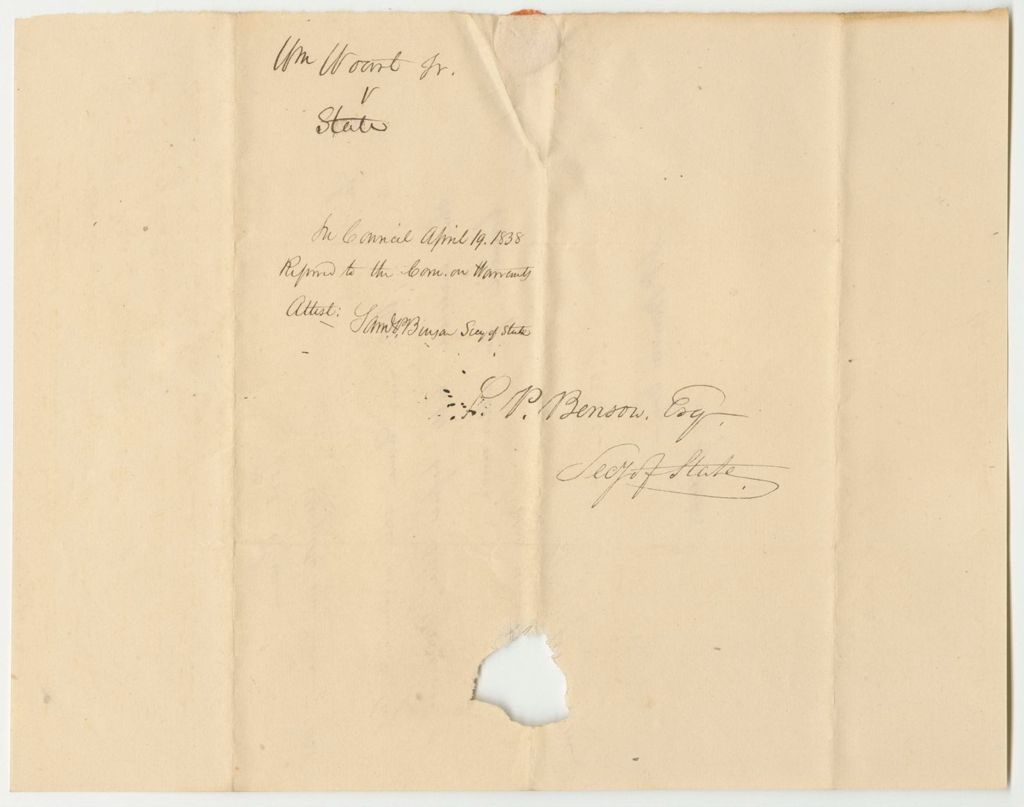 Wm Woart Jr.
v
State
In Council April 19. 1838
Referred to the Com. on Warrants
Attest:
Saml P. Benson Secy of State
S. P. Benson, Esq.
Secy of State.